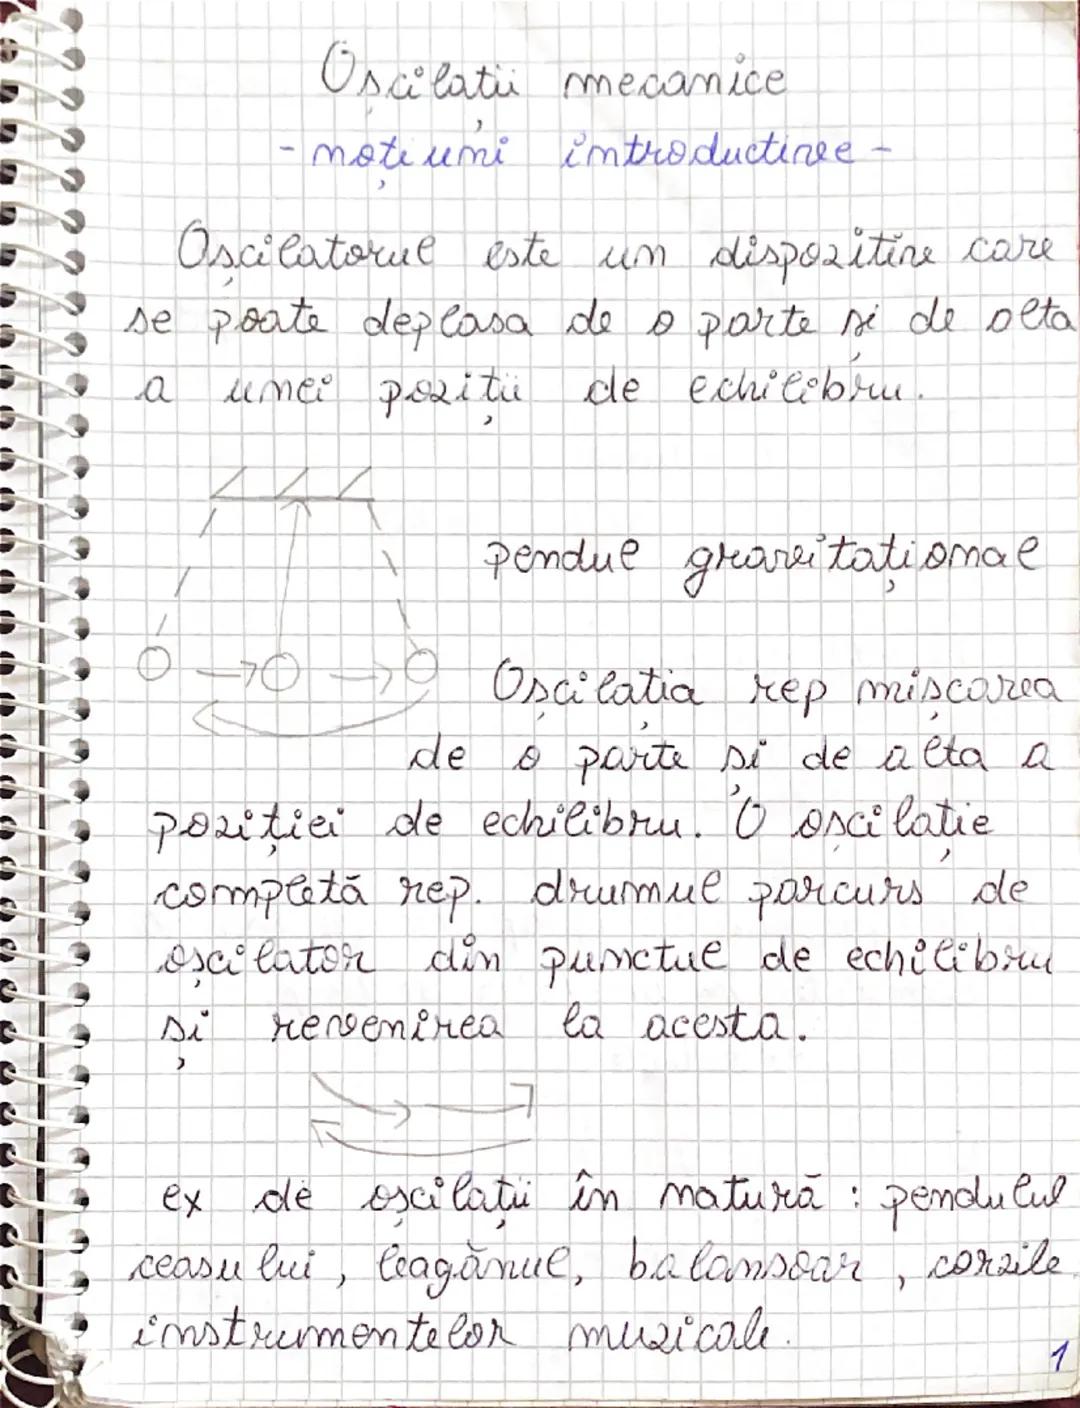 Oșcilații mecanice
- noțiuni introductive -
Oșcilatorul este un dispozitiv care
se poate deplasa de o parte și de alta
a unei poziții de echilibru.
pendul gravitațional
Oșcilația rep mișcarea
de o parte și de alta a
poziției de echilibru. O oșcilație
completă rep. drumul parcurs de
oșcilator din punctul de echilibru
și revenirea la acesta.
ex de oșcilații în natură : pendulul
ceasului, leagănul, balansoar, corzile
instrumentelor muzicale.
1